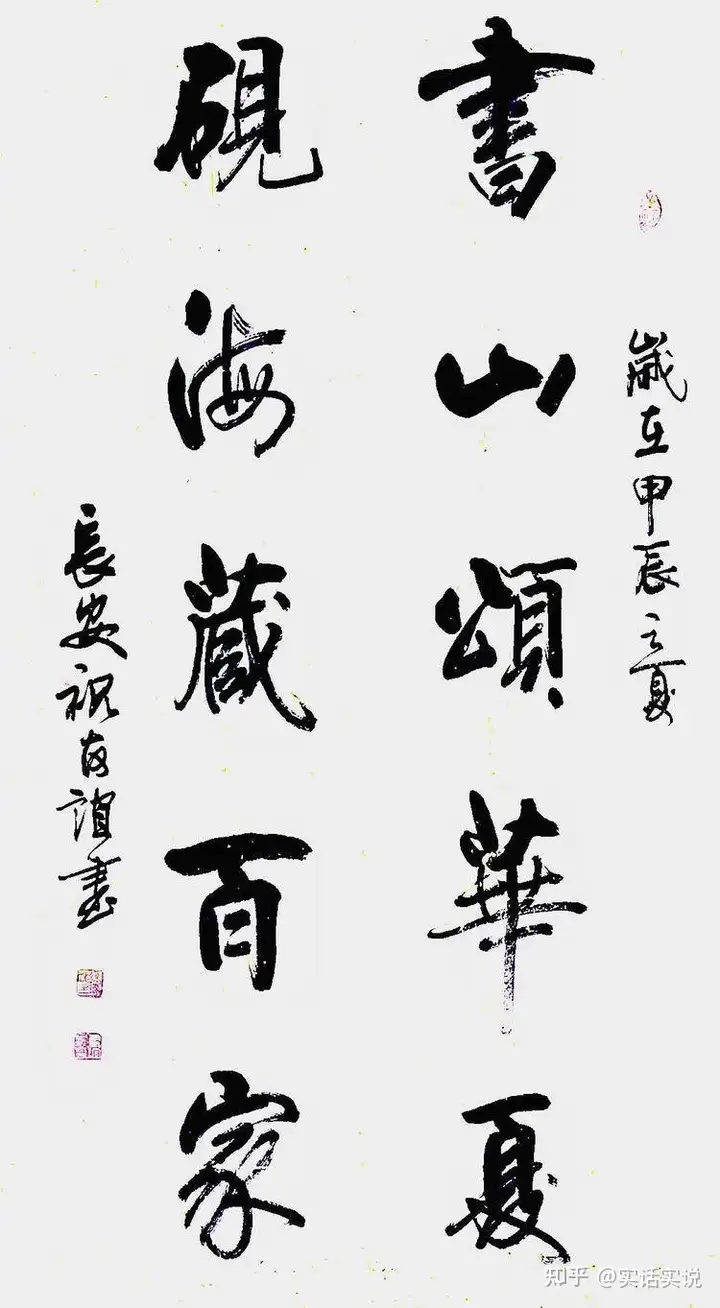 歲在甲辰之夏
書山頌華夏
硯海藏百家
長安祝友誼書
知乎 @实话实说